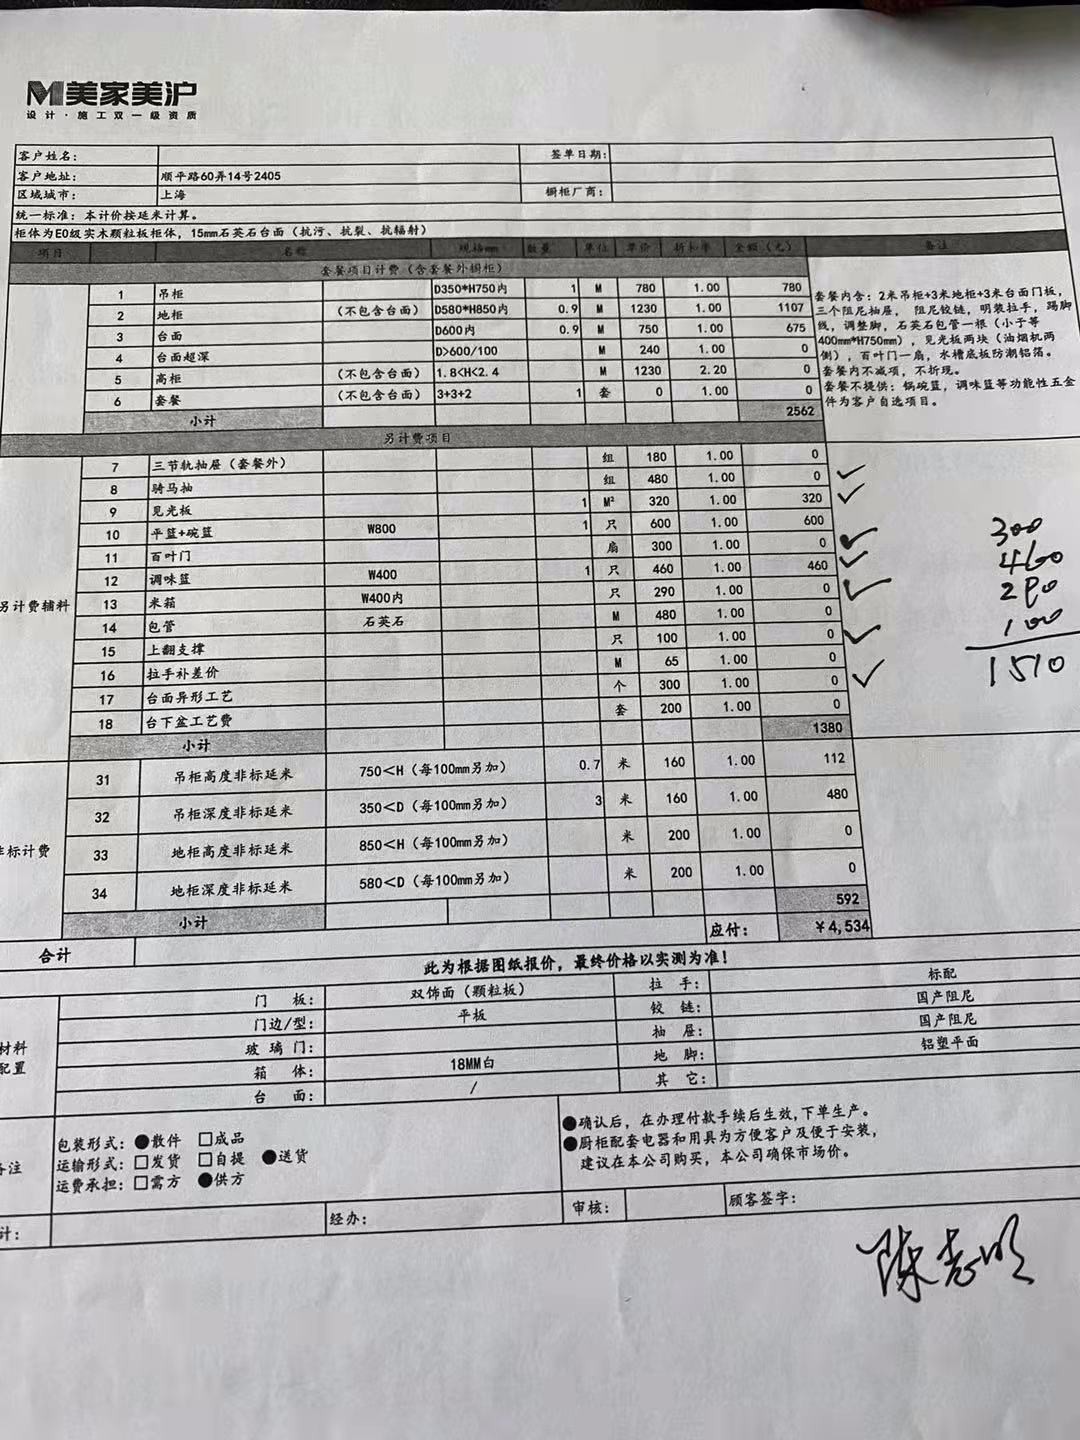 美家美沪
设计·施工双一级资质
客户姓名： 签单日期：
客户地址： 顺平路60弄14号2405
区域城市： 上海 橱柜厂商：
统一标准：本计价按延米计算。
柜体为E0级实木颗粒板柜体，15mm石英石台面（抗污、抗裂、抗辐射）
项目 名称 规格mm 数量 单位 单价 折扣率 金额（元） 备注
套餐项目计费（含套餐外橱柜）
1 吊柜 D350*H750内 1 M 780 1.00 780
2 地柜 （不包含台面） D580*H850内 0.9 M 1230 1.00 1107
3 台面 D600内 0.9 M 750 1.00 675
4 台面超深 D>600/100 M 240 1.00 0
5 高柜 （不包含台面） 1.8<H<2.4 M 1230 2.20 0
6 套餐 （不包含台面） 3+3+2 1 套 0 1.00 0
小计 2562
套餐内含：2米吊柜+3米地柜+3米台面门板，
三个阻尼抽屉， 阻尼铰链，明装拉手，踢脚
线，调整脚，石英石包管一根（小于等
400mm*H750mm），见光板两块（油烟机两
侧），百叶门一扇，水槽底板防潮铝箔。
套餐内不减项，不折现。
套餐不提供：锅碗篮，调味篮等功能性五金
件为客户自选项目。
另计费项目
另计费辅料
7 三节轨抽屉（套餐外） 组 180 1.00 0
8 骑马抽 组 480 1.00 0
9 见光板 1 M² 320 1.00 320
10 平篮+碗篮 W800 1 只 600 1.00 600
11 百叶门 扇 300 1.00 0
12 调味篮 W400 1 只 460 1.00 460
13 米箱 W400内 只 290 1.00 0
14 包管 石英石 M 480 1.00 0
15 上翻支撑 只 100 1.00 0
16 拉手补差价 M 65 1.00 0
17 台面异形工艺 个 300 1.00 0
18 台下盆工艺费 套 200 1.00 0
小计 1380
300
460
290
100
1510
非标计费
31 吊柜高度非标延米 750<H（每100mm另加） 0.7 米 160 1.00 112
32 吊柜深度非标延米 350<D（每100mm另加） 3 米 160 1.00 480
33 地柜高度非标延米 850<H（每100mm另加） 米 200 1.00 0
34 地柜深度非标延米 580<D（每100mm另加） 米 200 1.00 0
小计 592
合计 应付： ￥4,534
此为根据图纸报价，最终价格以实测为准！
材料
配置
门 板： 双饰面（颗粒板） 拉 手： 标配
门边/型： 平板 铰 链： 国产阻尼
玻 璃 门： 抽 屉： 国产阻尼
箱 体： 18MM白 地 脚： 铝塑平面
台 面： / 其 它：
备注
包装形式：●散件 □成品
运输形式：□发货 □自提 ●送货
运费承担：□需方 ●供方
●确认后，在办理付款手续后生效,下单生产。
●厨柜配套电器和用具为方便客户及便于安装，
建议在本公司购买，本公司确保市场价。
计： 经办： 审核： 顾客签字：
陈志明